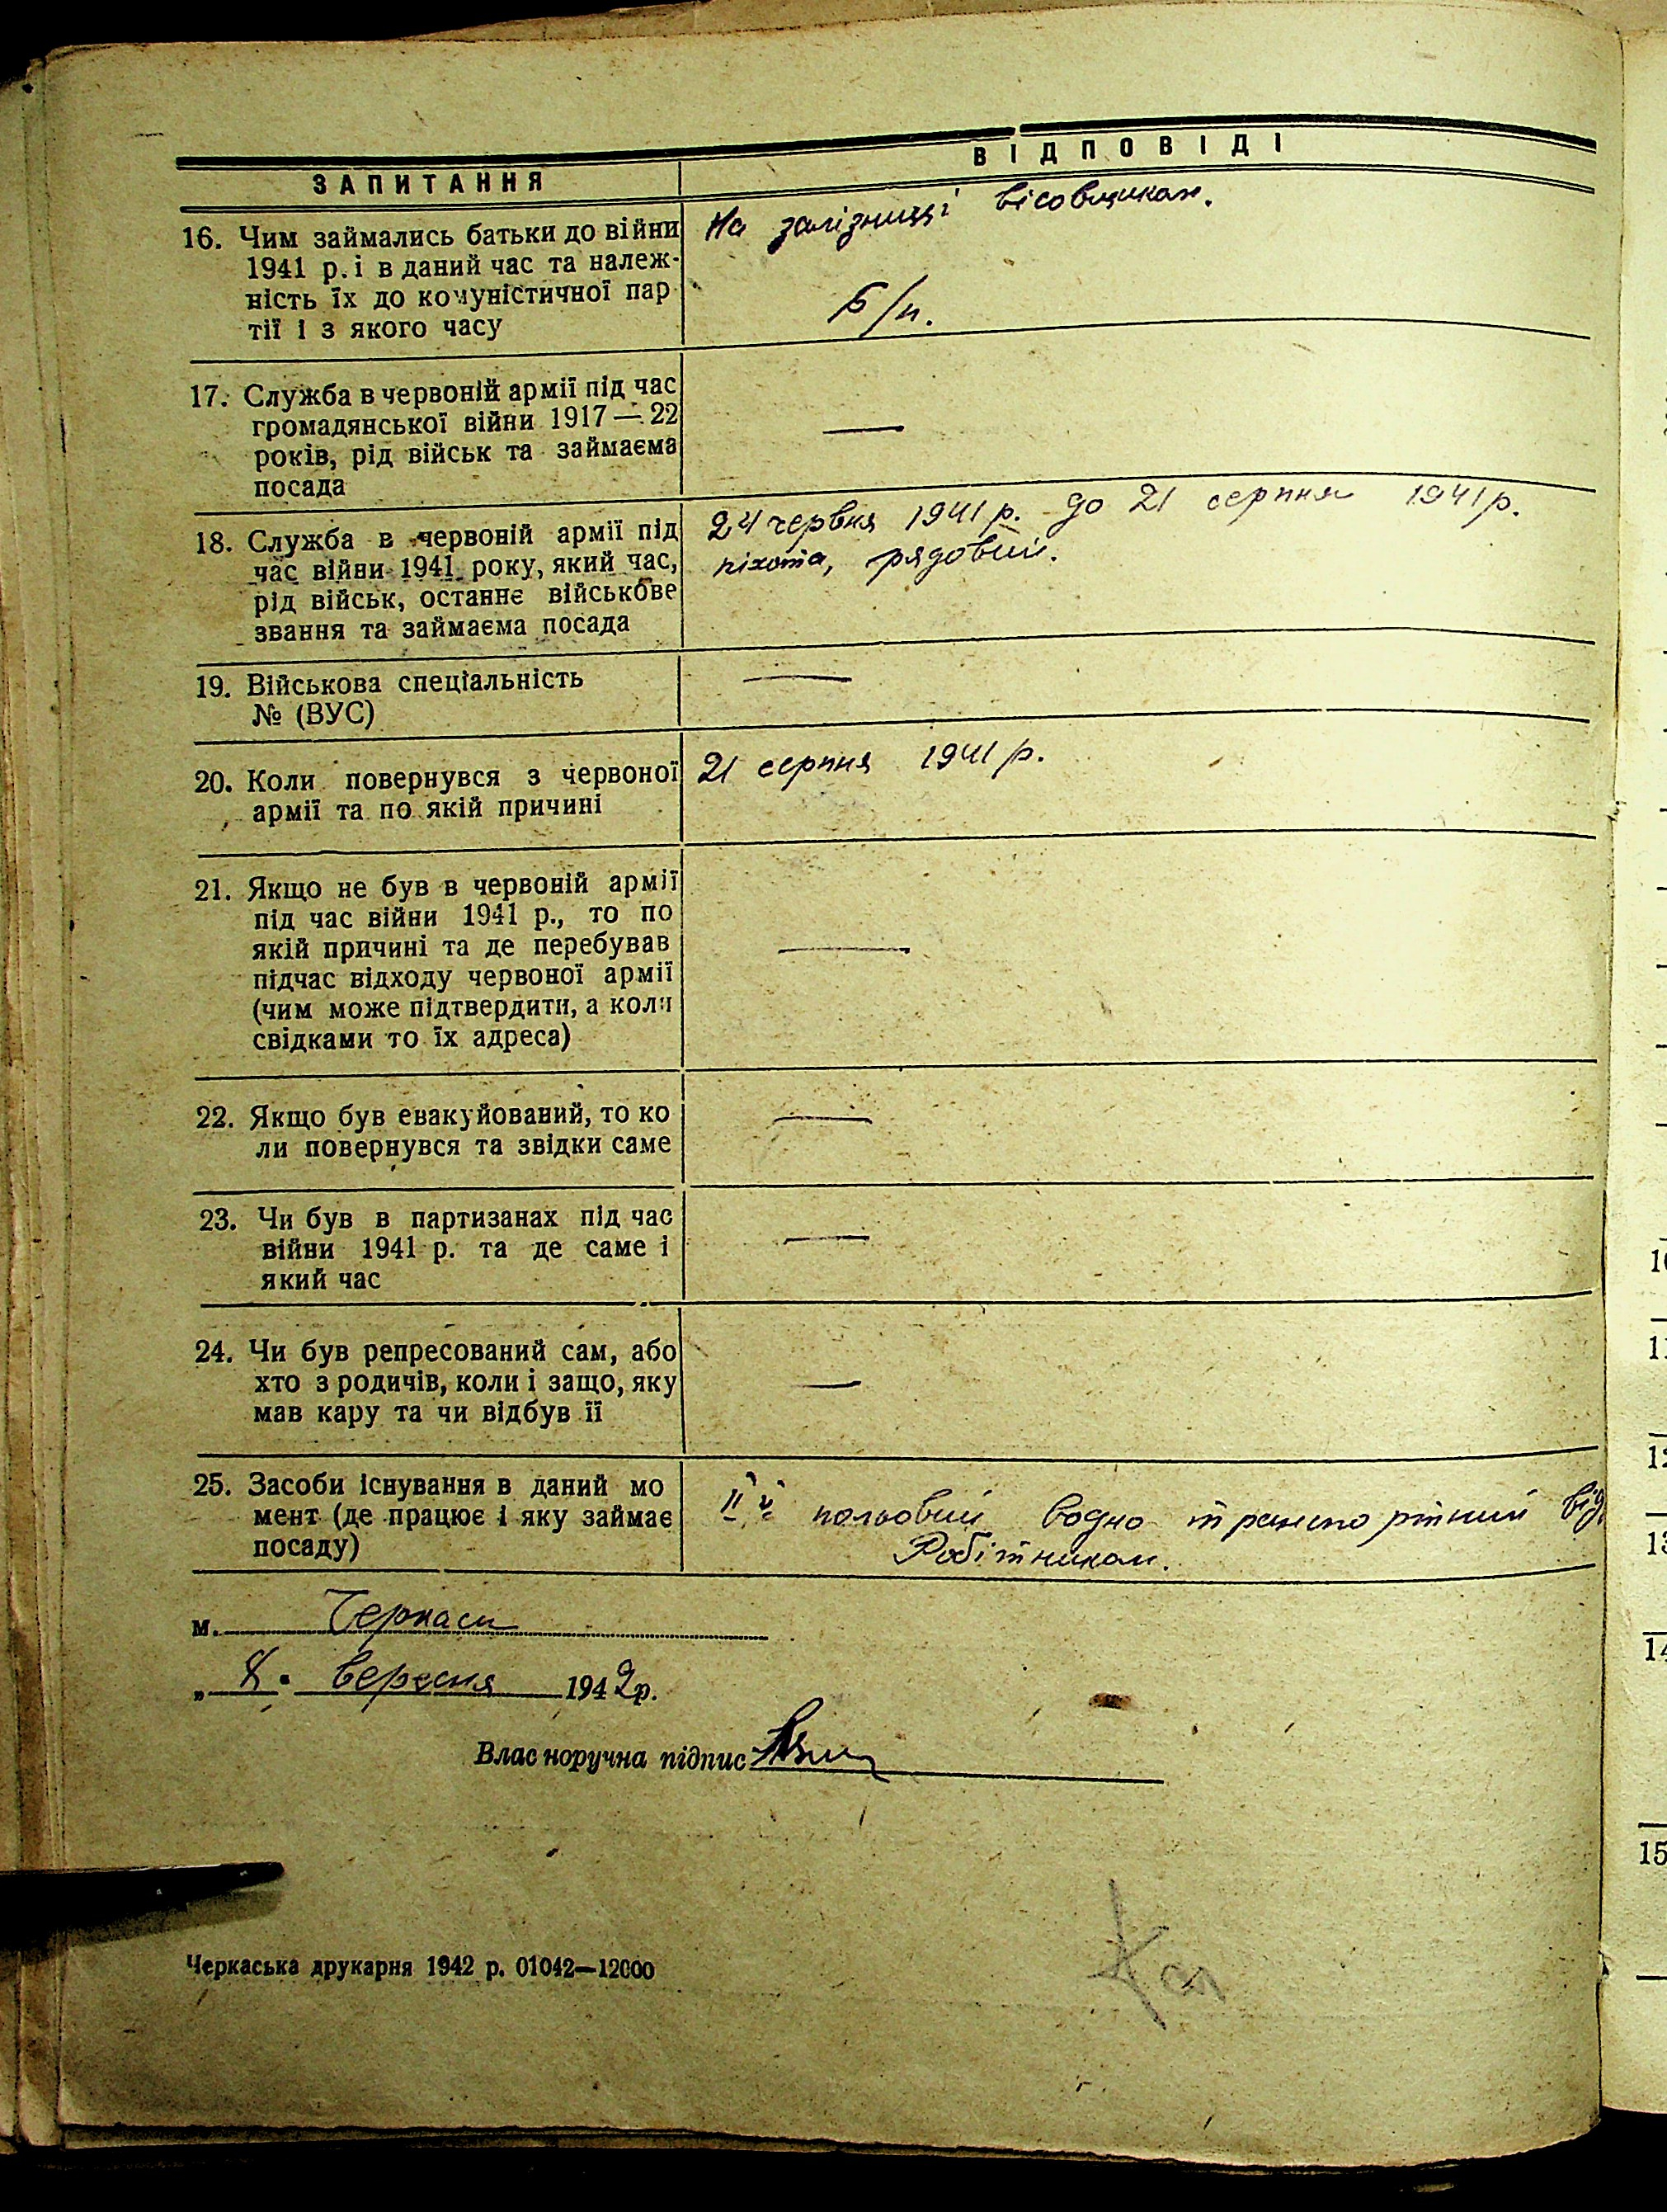 ВІДПОВІДІ
ЗАПИТАННЯ
16. Чим займались батьки до війни
1941 р. і в даний час та належ-
ність їх до комуністичної пар
тії і з якого часу
На залізниці вісовщиком.
Б/п.
17. Служба в червоній армії під час
громадянської війни 1917 — 22
років, рід військ та займаєма
посада
—
18. Служба в червоній армії під
час війни 1941 року, який час,
рід військ, останнє військове
звання та займаєма посада
24 червня 1941 р. до 21 серпня 1941 р.
піхота, рядовий.
19. Військова спеціальність
№ (ВУС)
—
20. Коли повернувся з червоної
армії та по якій причині
21 серпня 1941 р.
21. Якщо не був в червоній армії
під час війни 1941 р., то по
якій причині та де перебував
підчас відходу червоної армії
(чим може підтвердити, а коли
свідками то їх адреса)
—
22. Якщо був евакуйований, то ко
ли повернувся та звідки саме
—
23. Чи був в партизанах під час
війни 1941 р. та де саме і
який час
—
24. Чи був репресований сам, або
хто з родичів, коли і защо, яку
мав кару та чи відбув її
—
25. Засоби існування в даний мо
мент (де працює і яку займає
посаду)
ІІй польовий водно транспортний від
Робітником.
м. Черкаси
„ 8 " вересня 1942 р.
Власноручна підпис
Черкаська друкарня 1942 р. 01042—12000
10
11
12
13
14
15